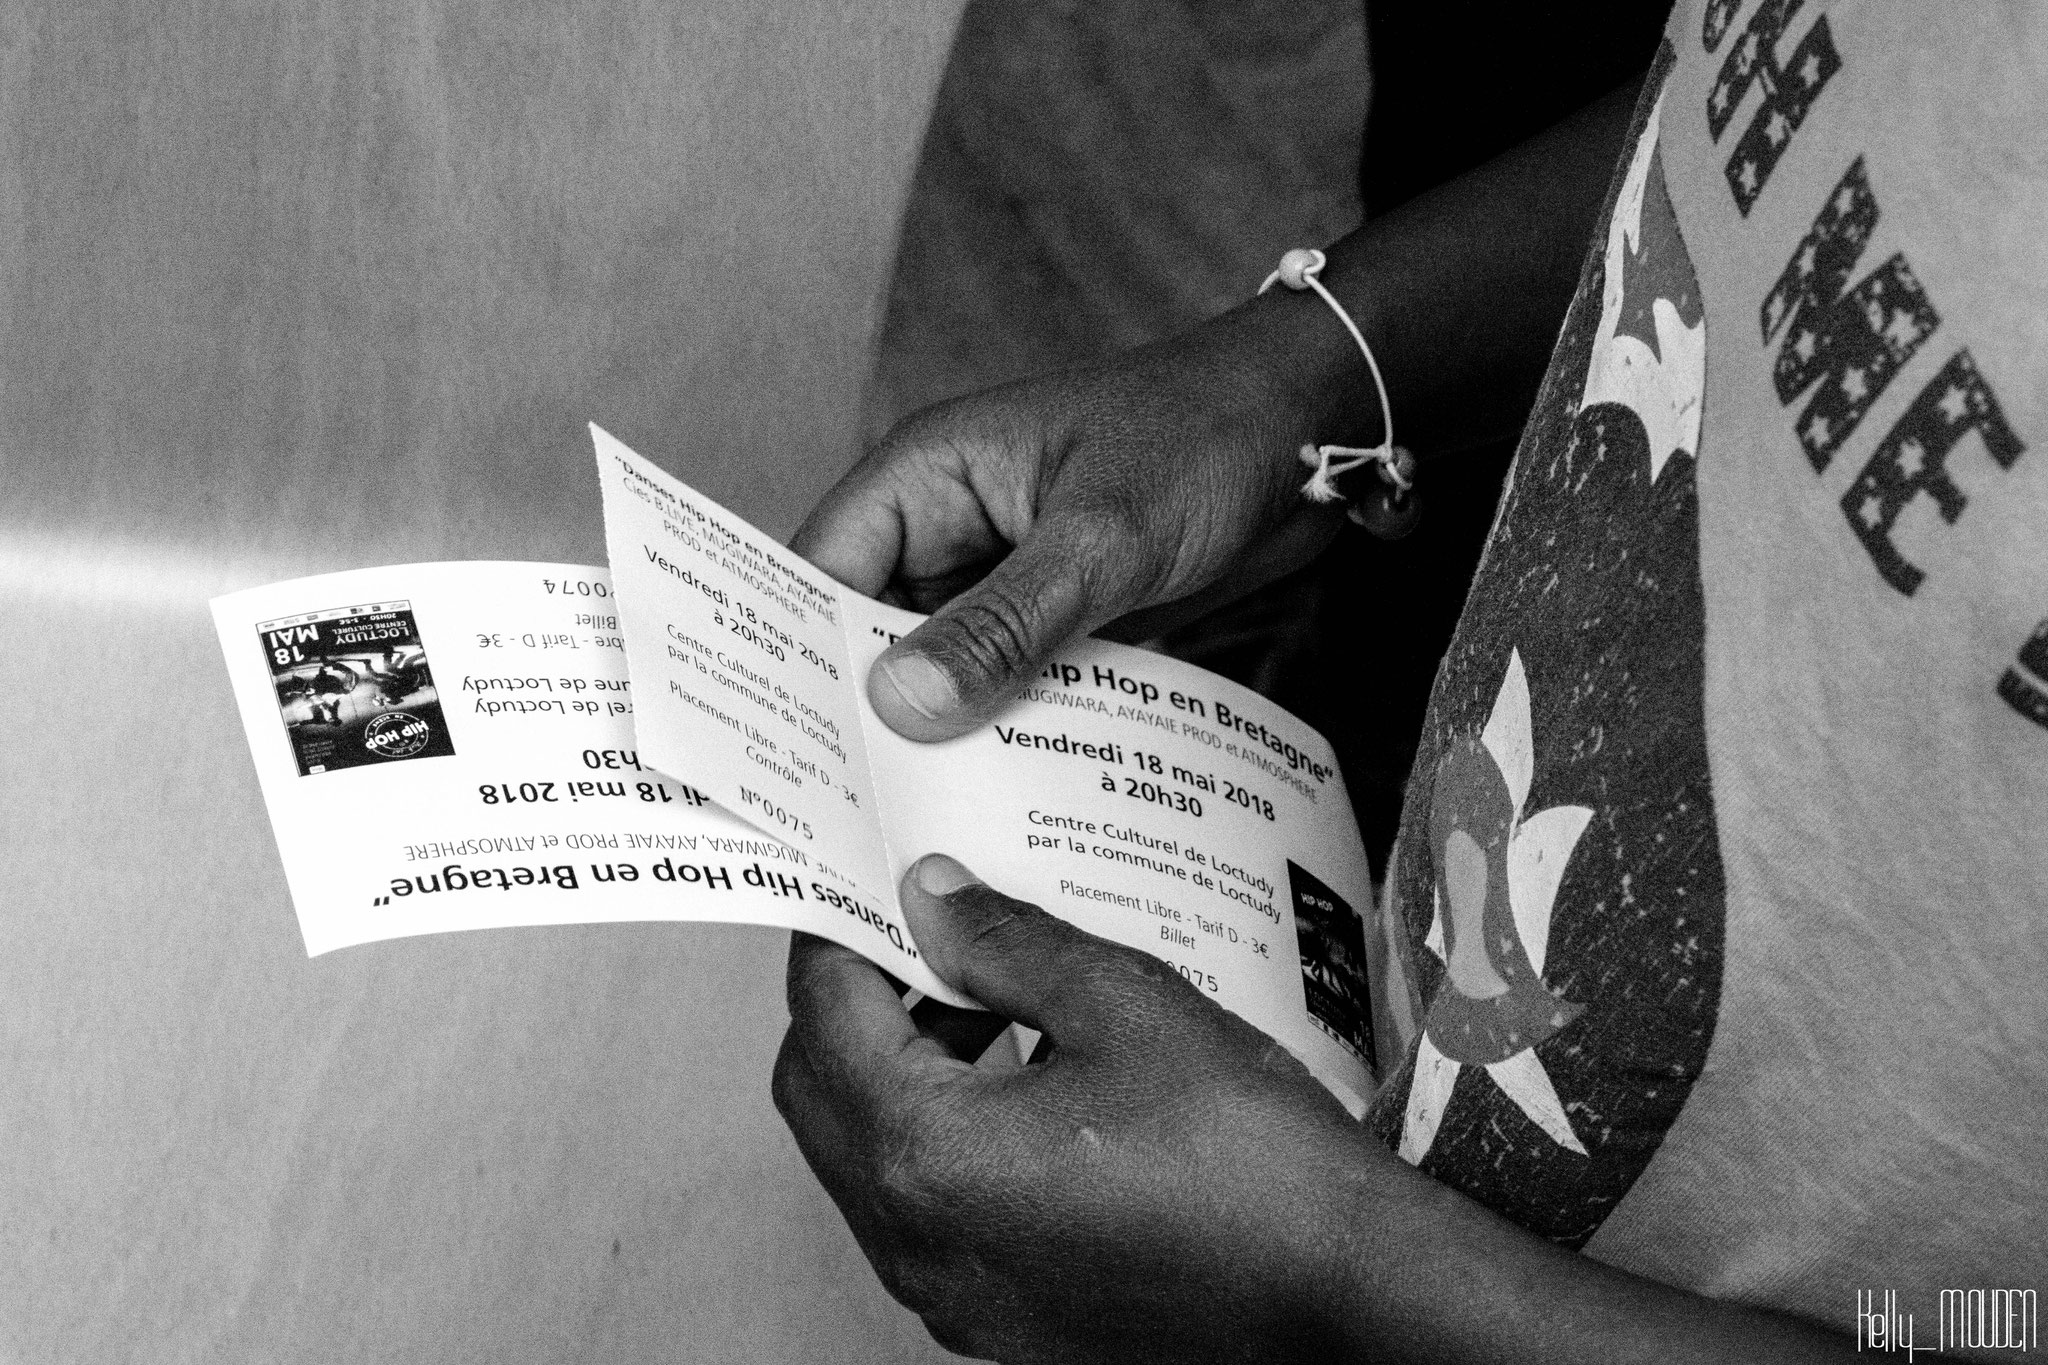 "Danses Hip Hop en Bretagne"
Cies B.LIVE, MUGIWARA, AYAYAIE
PROD et ATMOSPHERE
Vendredi 18 mai 2018
à 20h30
Centre Culturel de Loctudy
par la commune de Loctudy
Placement Libre - Tarif D - 3€
Contrôle
N°0075
Hip Hop en Bretagne"
MUGIWARA, AYAYAIE PROD et ATMOSPHERE
Vendredi 18 mai 2018
à 20h30
Centre Culturel de Loctudy
par la commune de Loctudy
Placement Libre - Tarif D - 3€
Billet
0075
HIP HOP
"Danses Hip Hop en Bretagne"
MUGIWARA, AYAYAIE PROD et ATMOSPHERE
di 18 mai 2018
h30
rel de Loctudy
une de Loctudy
bre - Tarif D - 3€
Billet
0074
HIP HOP
18
MAI
LOCTUDY
CENTRE CULTUREL
20H30 - 3-5€
WE
Kelly_MOUDEN